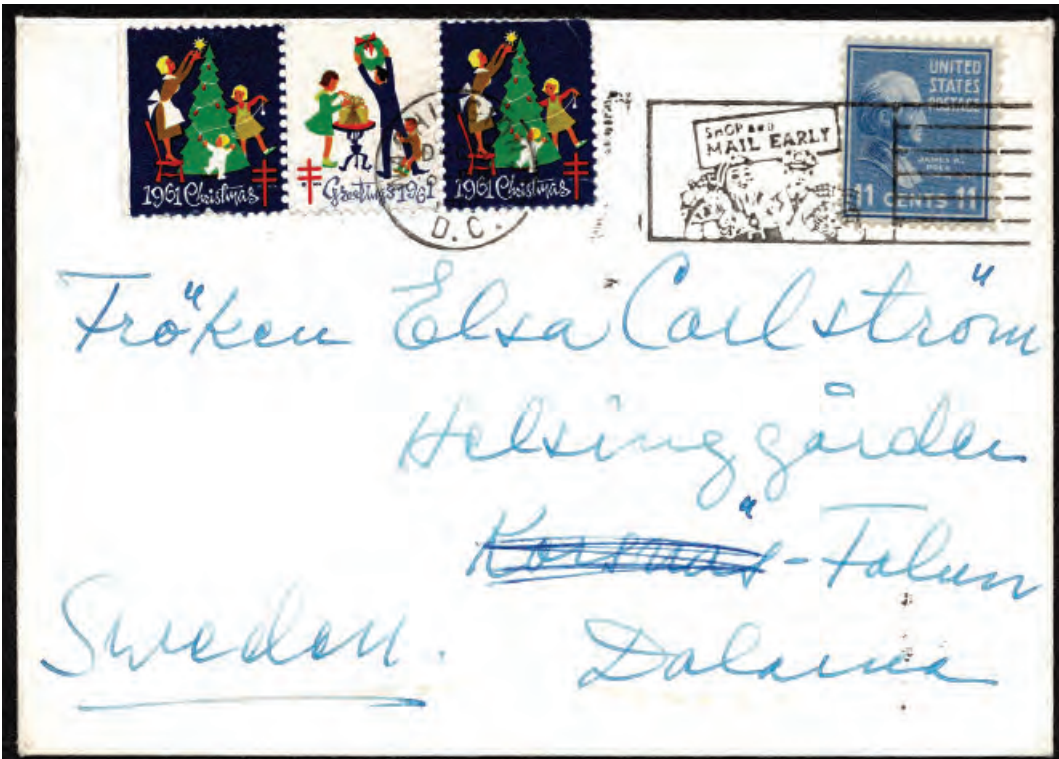 1961 Christmas
Greetings 1961
1961 Christmas
D.C.
SHOP AND
MAIL EARLY
UNITED
STATES
POSTAGE
JAMES K.
POLK
11 CENTS 11
Fröken Elsa Carlström
Helsinggården
Korsnäs-Falun
Dalarna
Sweden.